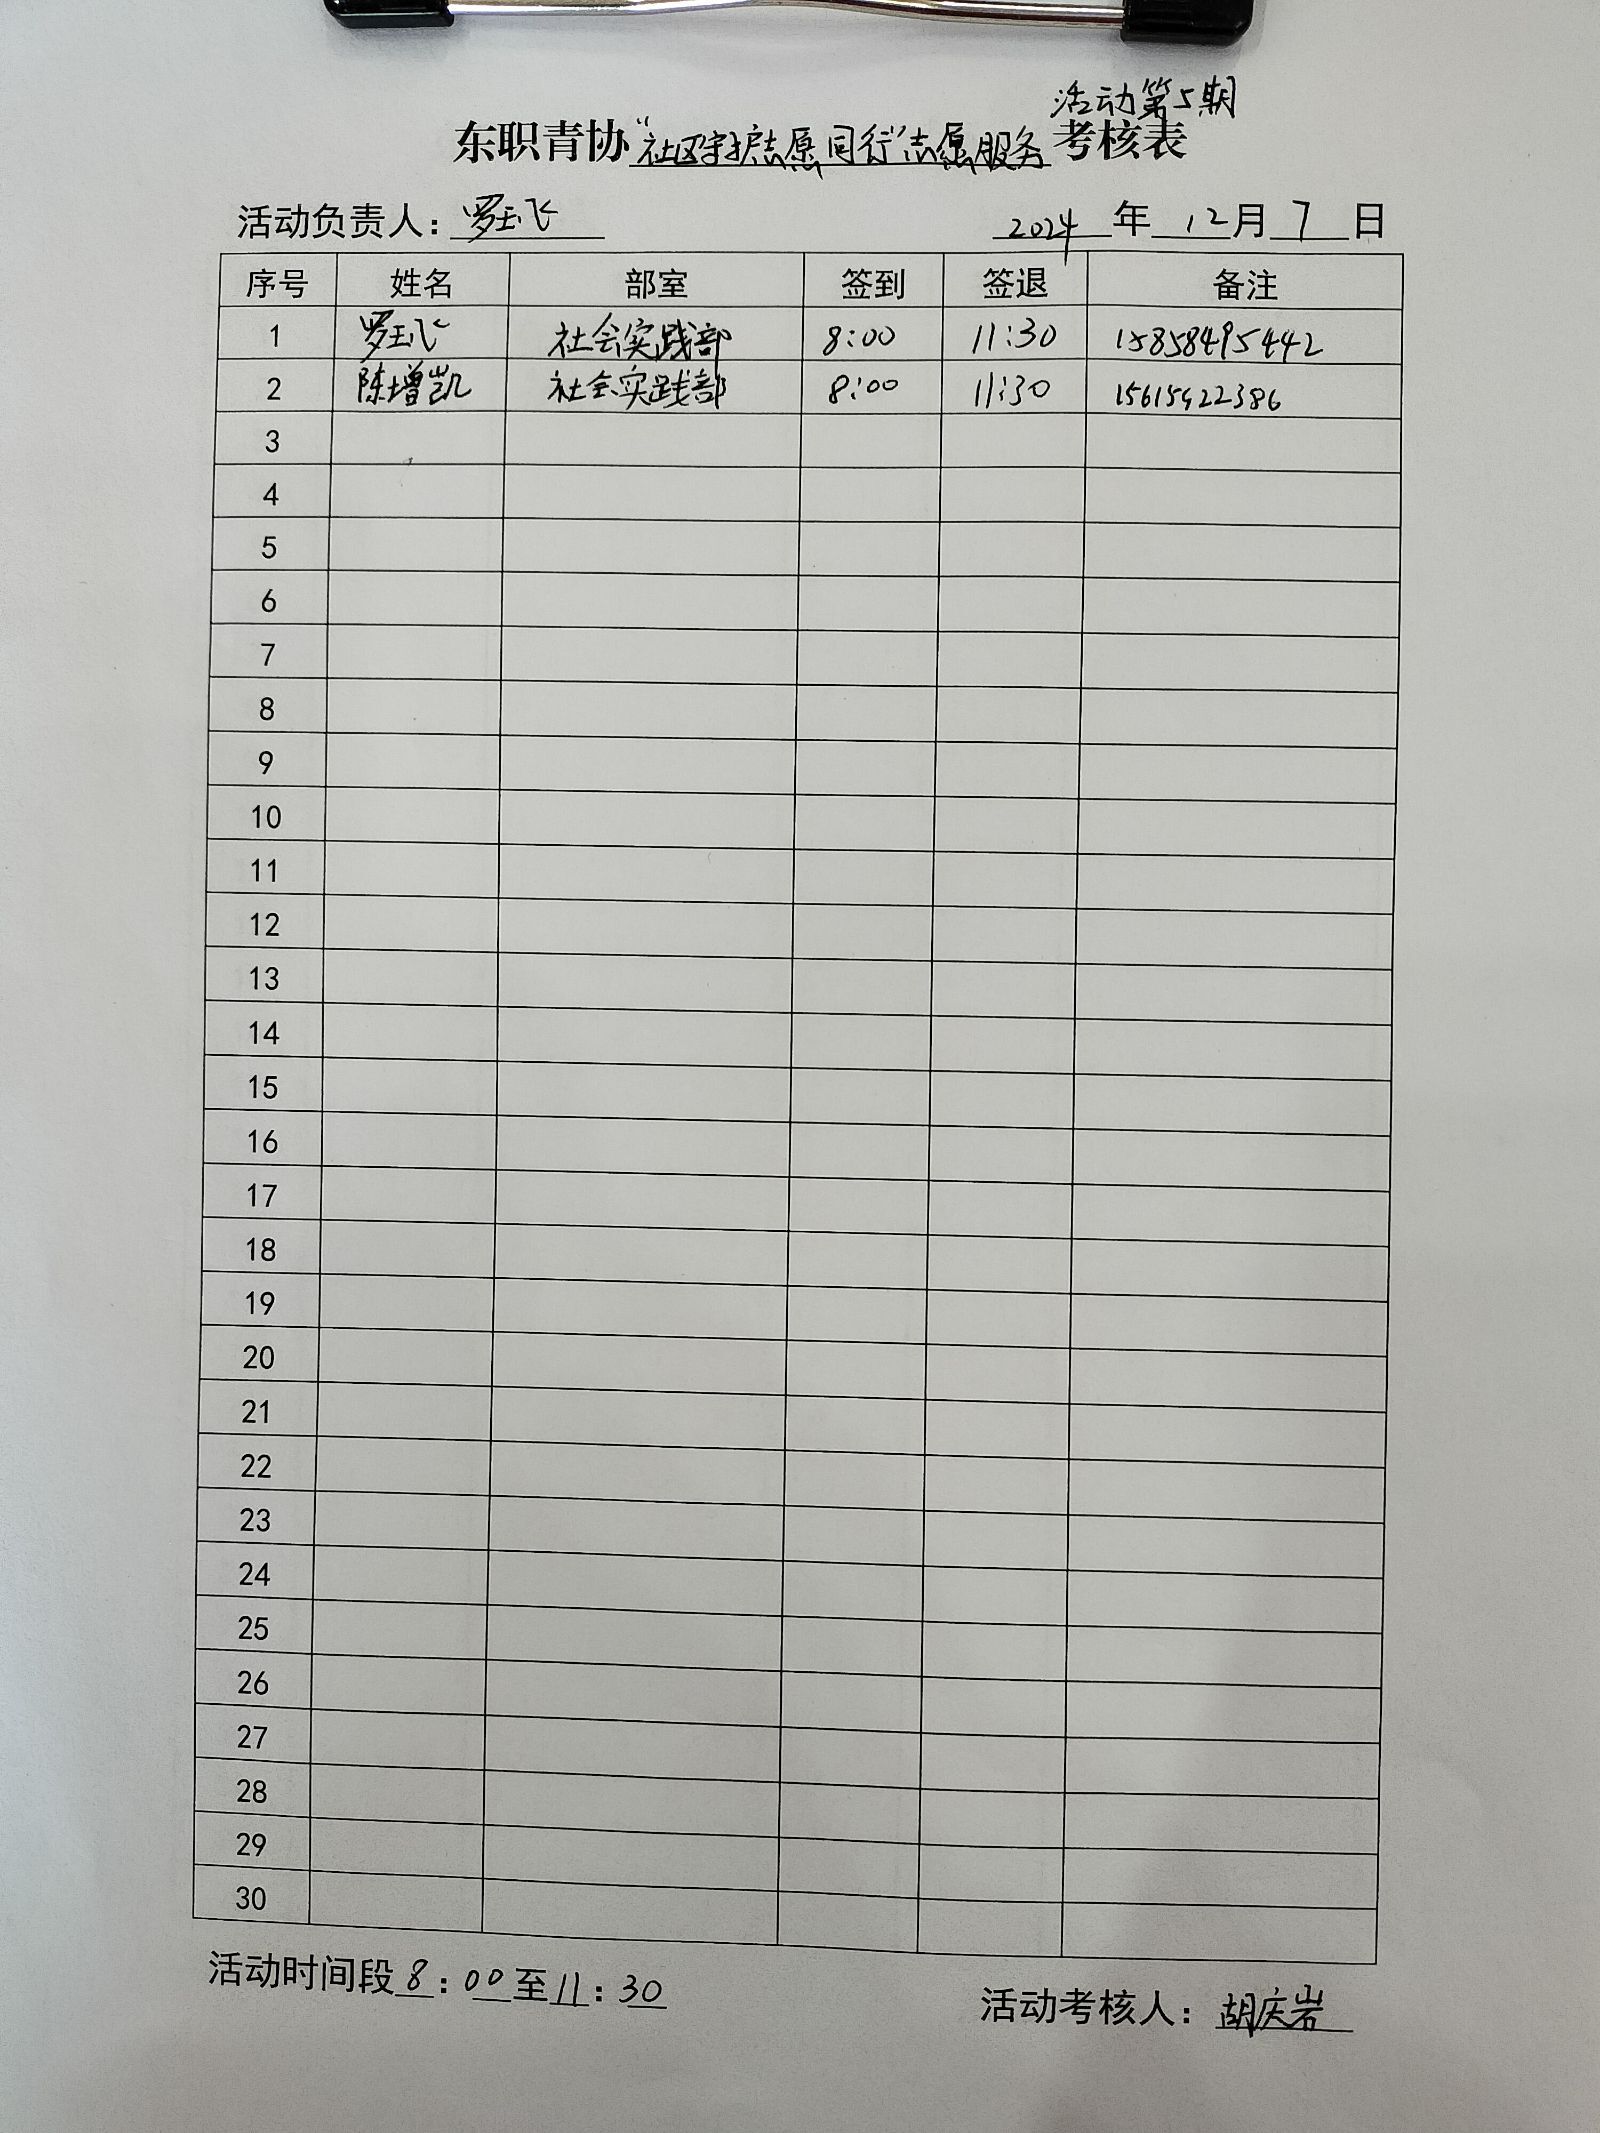 活动第5期
东职青协“社区守护志愿同行”志愿服务考核表
活动负责人：罗玉飞 2024年12月7日
序号 姓名 部室 签到 签退 备注
1 罗玉飞 社会实践部 8:00 11:30 15858495442
2 陈增凯 社会实践部 8:00 11:30 15615922386
3
4
5
6
7
8
9
10
11
12
13
14
15
16
17
18
19
20
21
22
23
24
25
26
27
28
29
30
活动时间段8:00至11:30
活动考核人：胡庆岩